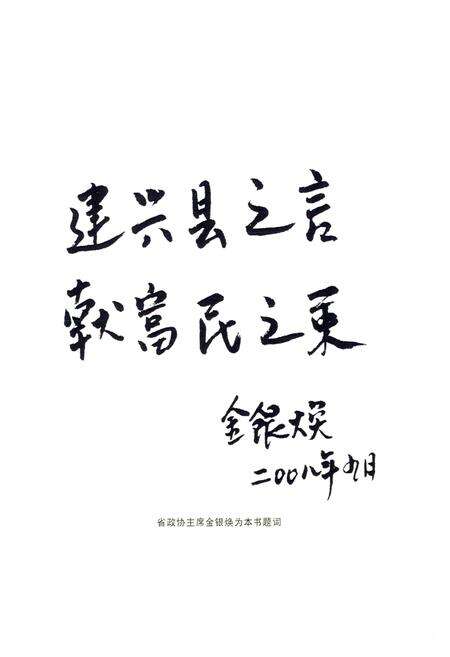 建兴县之言
献富民之策
金银焕
二〇〇八年九月
省政协主席金银焕为本书题词